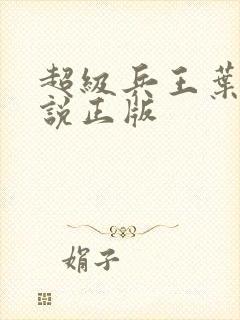 超級兵王葉
說正版
娟子